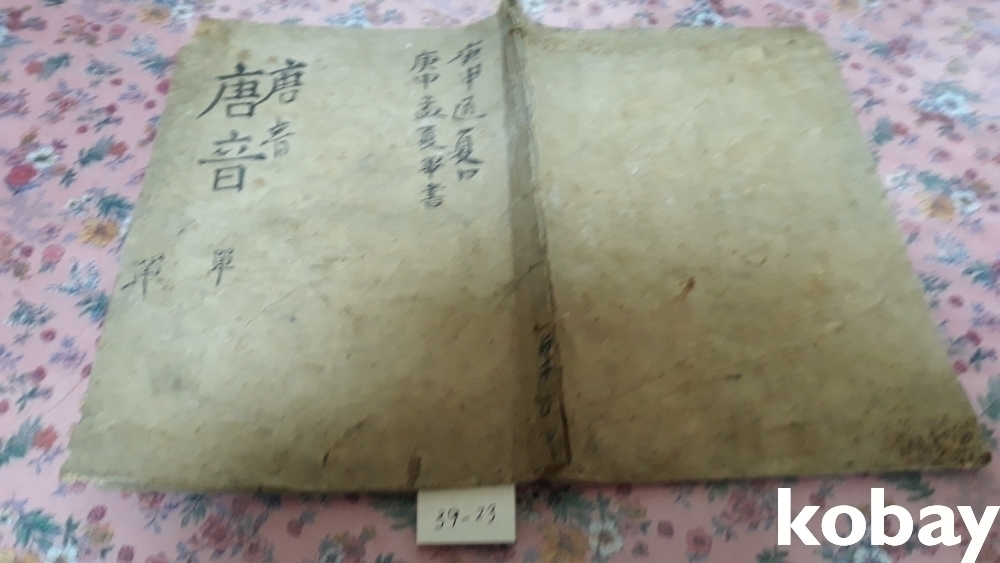 唐音
唐音
單
單
庚申孟夏畢書
庚申孟夏
39-23
kobay